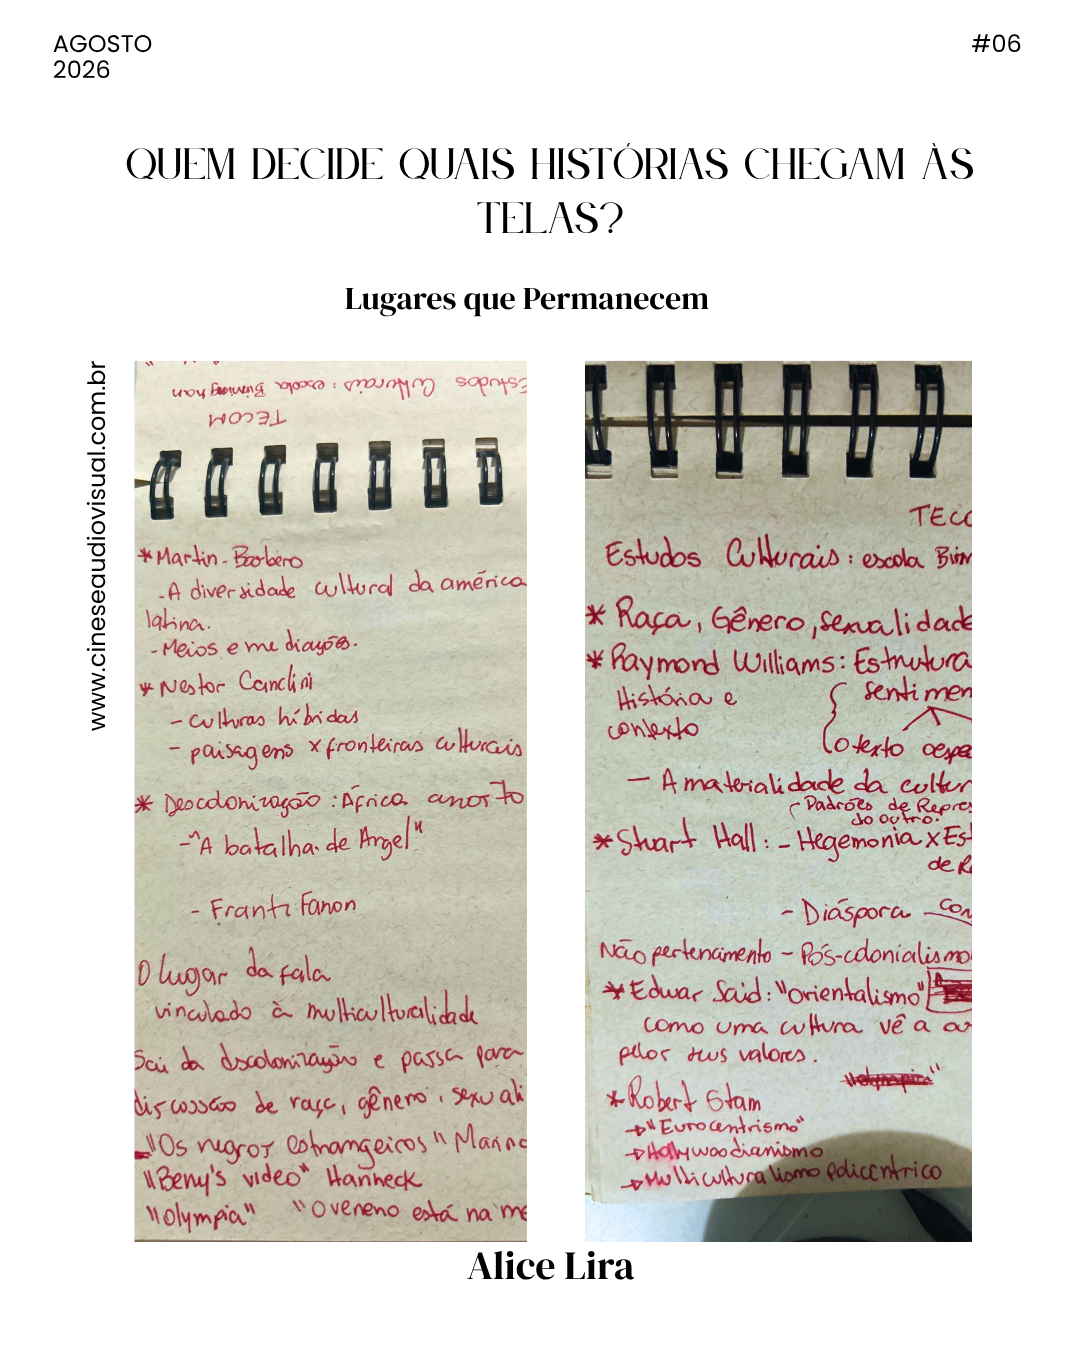 AGOSTO
2026
#06
QUEM DECIDE QUAIS HISTÓRIAS CHEGAM ÀS
TELAS?
Lugares que Permanecem
www.cineseaudiovisual.com.br
Estudos Culturais: escola Birmninghan
TECOM
* Martin-Barbero
- A diversidade cultural da américa
latina.
- Meios e mediações.
* Nestor Canclini
- culturas híbridas
- paisagens x fronteiras culturais
* Descolonização: África anos 70
- "A batalha de Argel"
- Frantz Fanon
O lugar da fala
vinculado à multiculturalidade
Sai da dscolonização e passa para
discossão de raça, gênero, sexuali
"Os negros estrangeiros"
"Beny's video" Hanneck
"Olympia" "O veneno está na me
TECO
Estudos Culturais: escola Birm
* Raça, Gênero, sexualidade
* Raymond Williams: Estrutura
História e
sentimen
contexto
O texto
- A materialidade da cultur
Padrões de Repres
do outro.
* Stuart Hall: - Hegemonia x Es
de R
- Diáspora con
Não pertencimento - Pós-colonialismo
* Edwar Said: "orientalismo"
como uma cultura vê a
pelos seus valores.
* Robert Stam
→ "Eurocentrismo"
→ Hollywoodianismo
→ Multiculturalismo policêntrico
Alice Lira